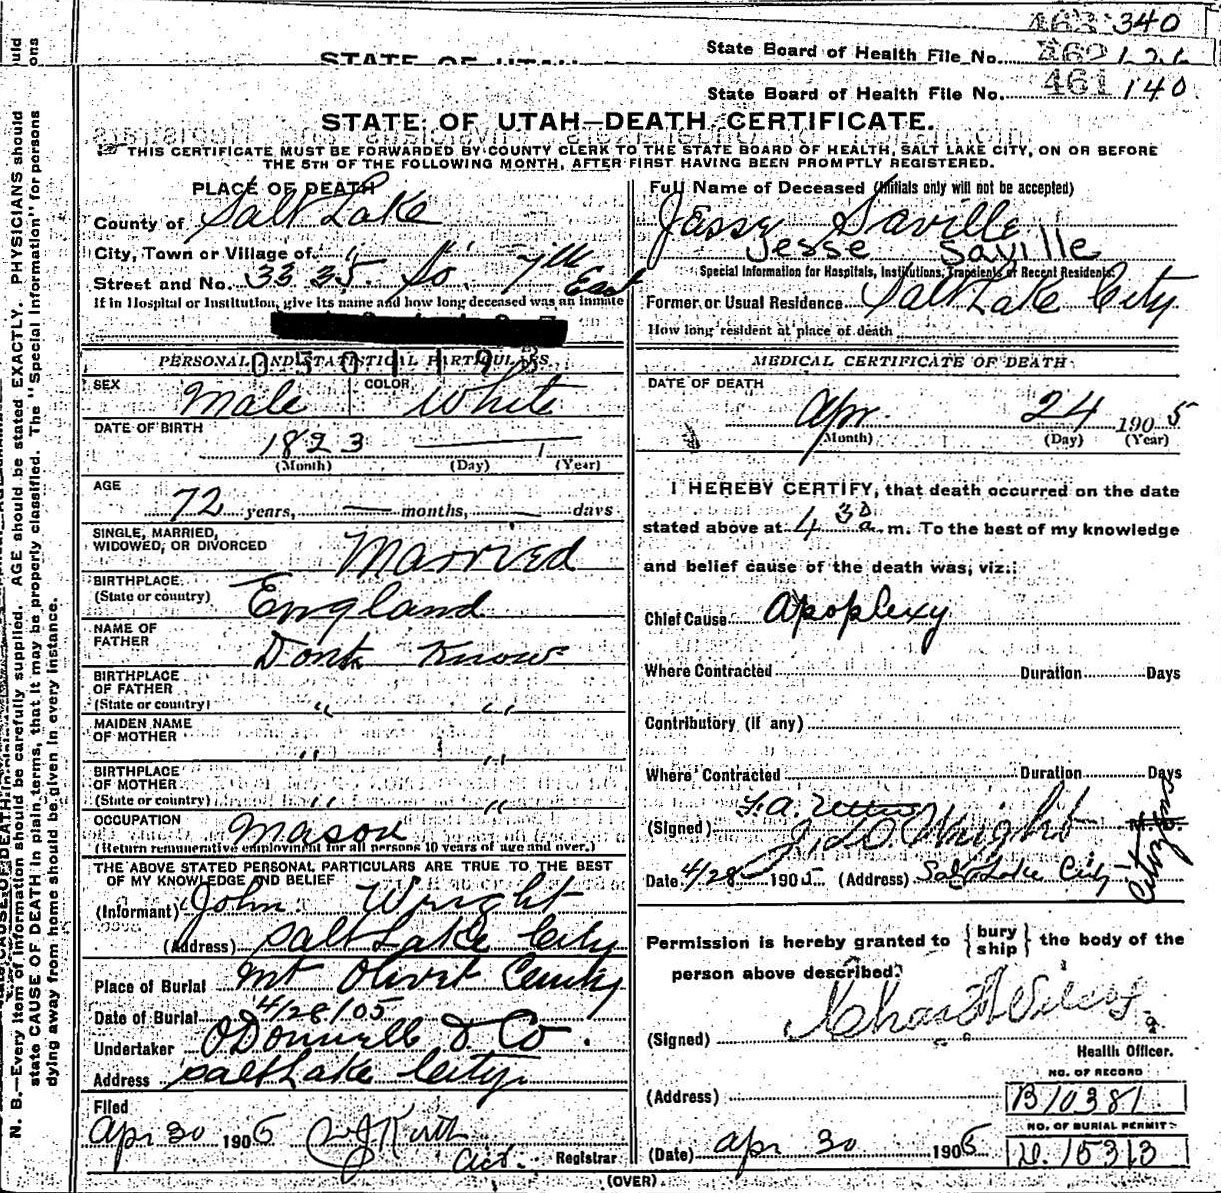 463 340
STATE OF UTAH
State Board of Health File No. 462 126
State Board of Health File No. 461 140
STATE OF UTAH—DEATH CERTIFICATE.
THIS CERTIFICATE MUST BE FORWARDED BY COUNTY CLERK TO THE STATE BOARD OF HEALTH, SALT LAKE CITY, ON OR BEFORE
THE 5TH OF THE FOLLOWING MONTH, AFTER FIRST HAVING BEEN PROMPTLY REGISTERED.
PLACE OF DEATH
County of Salt Lake
City, Town or Village of "
Street and No. 3335 So. 7th East
If in Hospital or Institution, give its name and how long deceased was an inmate
0504193
PERSONAL AND STATISTICAL PARTICULARS
SEX Male COLOR White
DATE OF BIRTH 1823
(Month) (Day) (Year)
AGE 72 years, — months, — days
SINGLE, MARRIED,
WIDOWED, OR DIVORCED Married
BIRTHPLACE
(State or country) England
NAME OF
FATHER Dont Know
BIRTHPLACE
OF FATHER
(State or country) " "
MAIDEN NAME
OF MOTHER " "
BIRTHPLACE
OF MOTHER
(State or country) " "
OCCUPATION Mason
(Return remunerative employment for all persons 10 years of age and over.)
THE ABOVE STATED PERSONAL PARTICULARS ARE TRUE TO THE BEST
OF MY KNOWLEDGE AND BELIEF
(Informant) John Wright
(Address) Salt Lake City
Place of Burial Mt Olivet Cemty
Date of Burial 4/28/05
Undertaker O'Donnell & Co.
Address Salt Lake City
Filed
Apr 30 1905
Act. Registrar
Full Name of Deceased (Initials only will not be accepted)
Jessy Saville
Jesse Saville
Special Information for Hospitals, Institutions, Transients or Recent Residents.
Former or Usual Residence Salt Lake City
How long resident at place of death
MEDICAL CERTIFICATE OF DEATH
DATE OF DEATH
Apr. 24 1905
(Month) (Day) (Year)
I HEREBY CERTIFY, that death occurred on the date
stated above at 4 30 a. m. To the best of my knowledge
and belief cause of the death was, viz.:
Chief Cause Apoplexy
Where Contracted Duration Days
Contributory (if any)
Where Contracted Duration Days
(Signed) J. D. Wright
Date 4/28 1905 (Address) Salt Lake City
Permission is hereby granted to {bury
ship} the body of the
person above described.
(Signed)
Health Officer.
(Address)
NO. OF RECORD
B10381
NO. OF BURIAL PERMIT
D. 15313
(Date) Apr 30 1905
(OVER)
N. B.—Every item of information should be carefully supplied. AGE should be stated EXACTLY. PHYSICIANS should
state CAUSE OF DEATH in plain terms, that it may be properly classified. The "Special Information" for persons
dying away from home should be given in every instance.